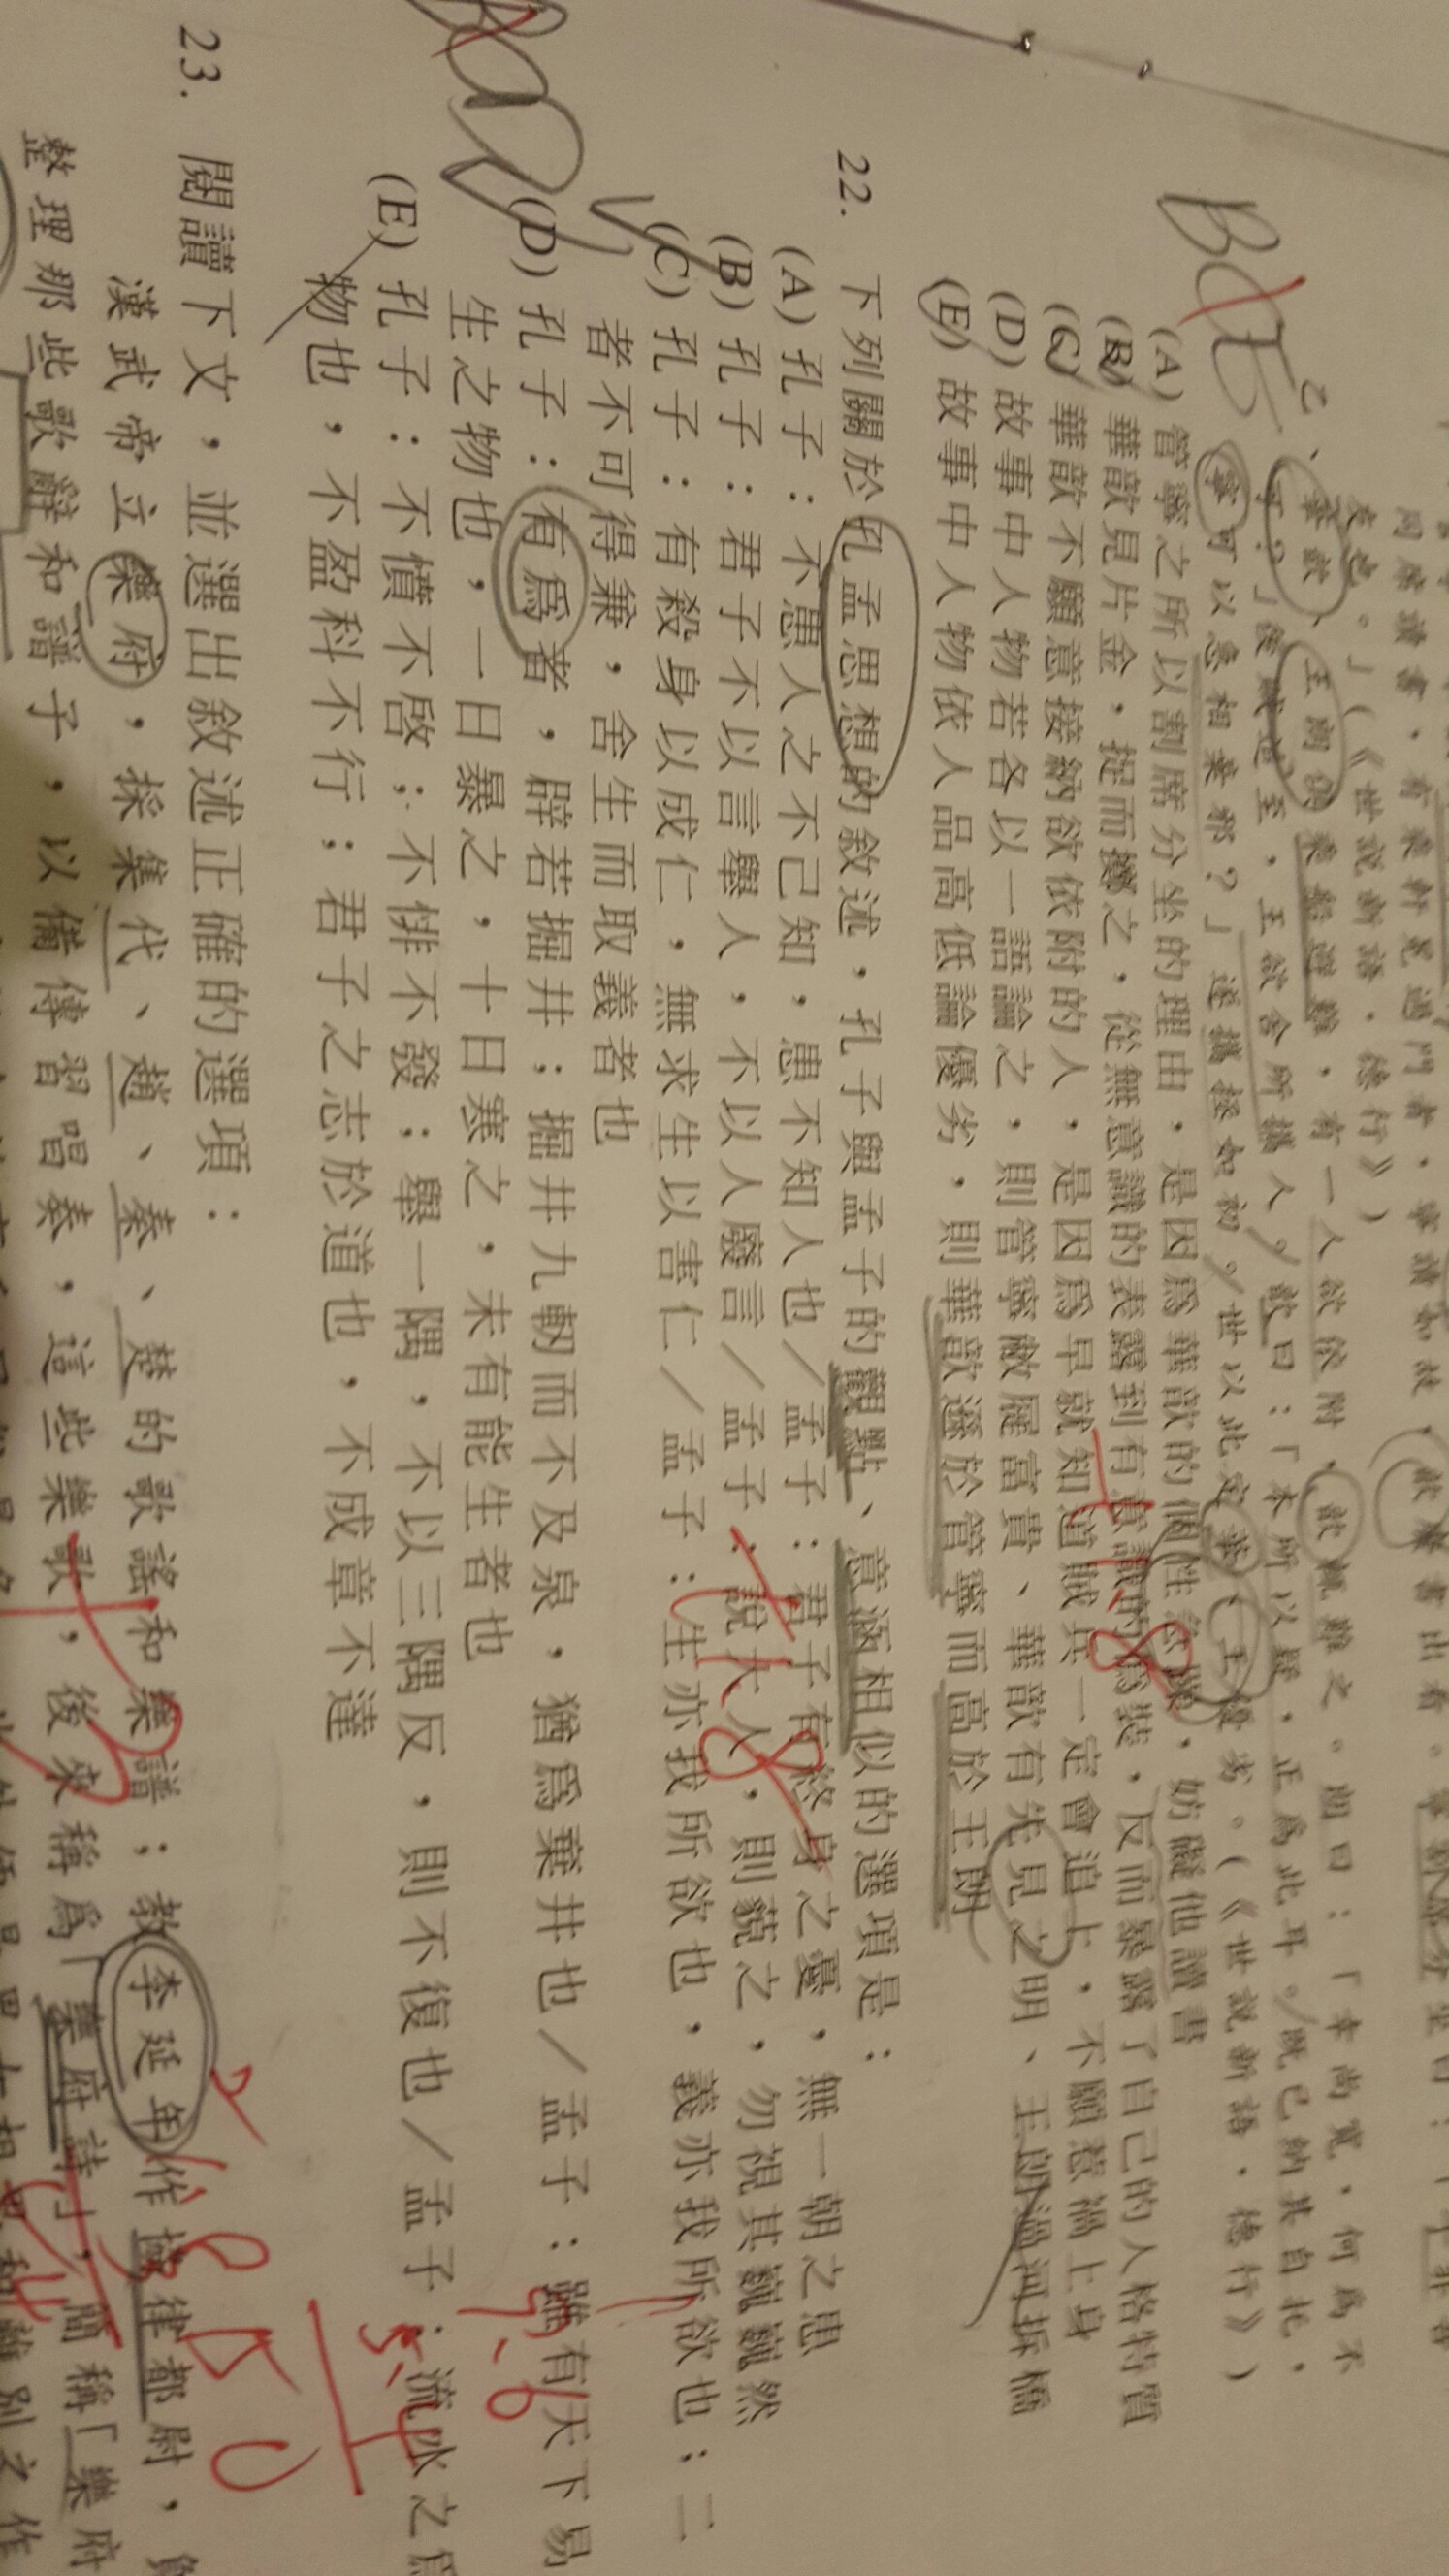 同席讀書，有乘軒冕過門者，寧讀如故，歆廢書出看。寧割席分坐曰：
友也。」（《世說新語．德行》）
乙、華歆、王朗俱乘船避難，有一人欲依附，歆輒難之。朗曰：「幸尚寬，何為不
可？」後賊追至，王欲舍所攜人。歆曰：「本所以疑，正為此耳。既已納其自託，
寧可以急相棄邪？」遂攜拯如初。世以此定華、王優劣。（《世說新語．德行》）
BCE
(A) 管寧之所以割席分坐的理由，是因為華歆的個性急躁，妨礙他讀書
(B) 華歆見片金，捉而擲之，從無意識的表露到有意識的偽裝，反而暴露了自己的人格特質
(C) 華歆不願意接納欲依附的人，是因為早就知道賊兵一定會追上，不願惹禍上身
(D) 故事中人物若各以一語論之，則管寧敝屣富貴、華歆有先見之明、王朗過河拆橋
(E) 故事中人物依人品高低論優劣，則華歆遜於管寧而高於王朗
22. 下列關於孔孟思想的敘述，孔子與孟子的觀點、意涵相似的選項是：
(A) 孔子：不患人之不己知，患不知人也／孟子：君子有終身之憂，無一朝之患
(B) 孔子：君子不以言舉人，不以人廢言／孟子：說大人，則藐之，勿視其巍巍然
(C) 孔子：有殺身以成仁，無求生以害仁／孟子：生亦我所欲也，義亦我所欲也；二
者不可得兼，舍生而取義者也
(D) 孔子：有為者，辟若掘井；掘井九軔而不及泉，猶為棄井也／孟子：雖有天下易
生之物也，一日暴之，十日寒之，未有能生者也
(E) 孔子：不憤不啟；不悱不發；舉一隅，不以三隅反，則不復也／孟子：流水之為
物也，不盈科不行；君子之志於道也，不成章不達
23. 閱讀下文，並選出敘述正確的選項：
漢武帝立樂府，採集代、趙、秦、楚的歌謠和樂譜；教李延年作協律都尉，負
整理那些歌辭和譜子，以備傳習唱奏，這些樂歌，後來稱為「樂府詩」，簡稱「樂府